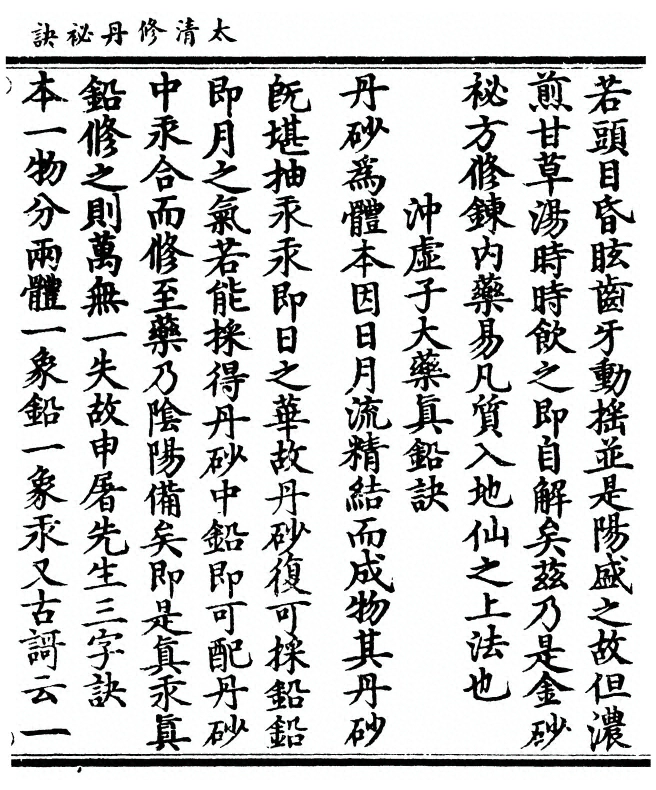 太清修丹祕訣
若頭目昏眩齒牙動搖並是陽盛之故但濃
煎甘草湯時時飲之即自解矣茲乃是金砂
祕方修鍊内藥易凡質入地仙之上法也
沖虛子大藥眞鉛訣
丹砂爲體本因日月流精結而成物其丹砂
旣堪抽汞汞即日之華故丹砂復可採鉛鉛
即月之氣若能採得丹砂中鉛即可配丹砂
中汞合而修至藥乃陰陽備矣即是眞汞眞
鉛修之則萬無一失故申屠先生三字訣
本一物分兩體一象鉛一象汞又古謌云一